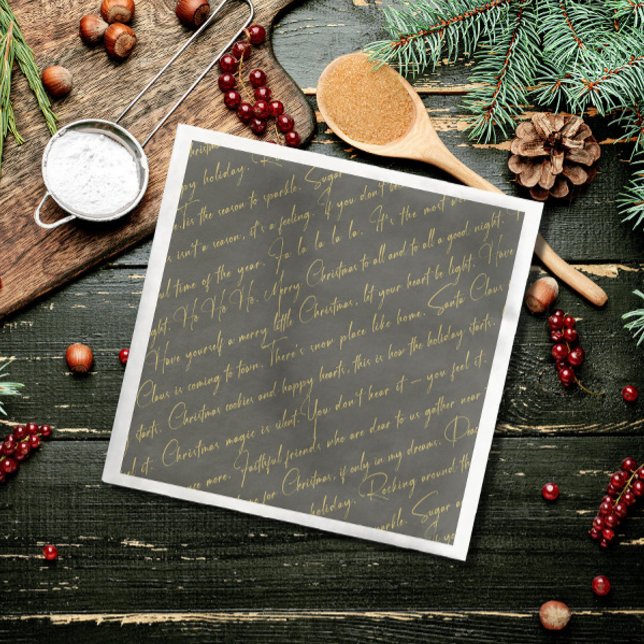 Christmas
ppy holiday. Sugar
'tis the season to sparkle. If you don't
s isn't a season, it's a feeling. It's the most
ul time of the year. Fa la la la la. all to a good night.
ght. Ho Ho Ho. Merry Christmas to all and to Have
Have yourself a merry little Christmas, let your heart be light.
Claus is coming to town. There's snow place like home. Santa Claus
starts. Christmas cookies and happy hearts, this is how the holiday starts.
l it. Christmas magic is silent. You don't hear it – you feel it.
more. Faithful friends who are dear to us gather near
for Christmas, if only in my dreams.
holiday. Rocking around the
sparkle. Sugar